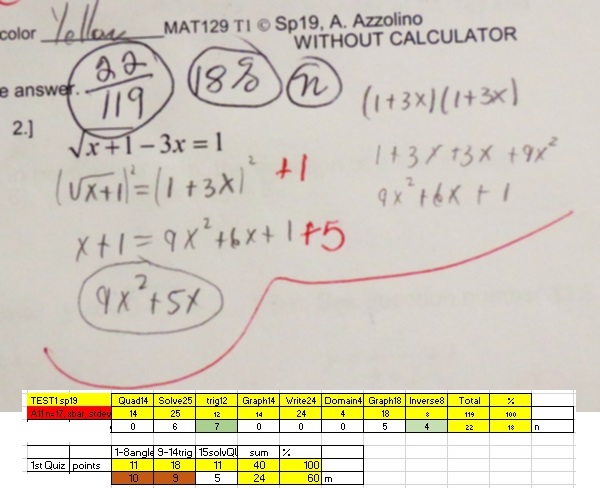 color Yellow MAT129 T1 © Sp19, A. Azzolino
WITHOUT CALCULATOR
e answer. 22/119 18% n
2.]
√x+1 − 3x = 1
(√x+1)² = (1 + 3x)² +1
x + 1 = 9x² + 6x + 1 +5
9x² + 5x
(1+3x)(1+3x)
1 + 3x + 3x + 9x²
9x² + 6x + 1
TEST1 sp19 Quad14 Solve25 trig12 Graph14 Write24 Domain4 Graph18 Inverse8 Total %
stdev 14 25 12 14 24 4 18 8 119 100
0 6 7 0 0 0 5 4 22 18 n
1-8angle 9-14trig 15solvQU sum %
1st Quiz points 11 18 11 40 100
10 9 5 24 60 m